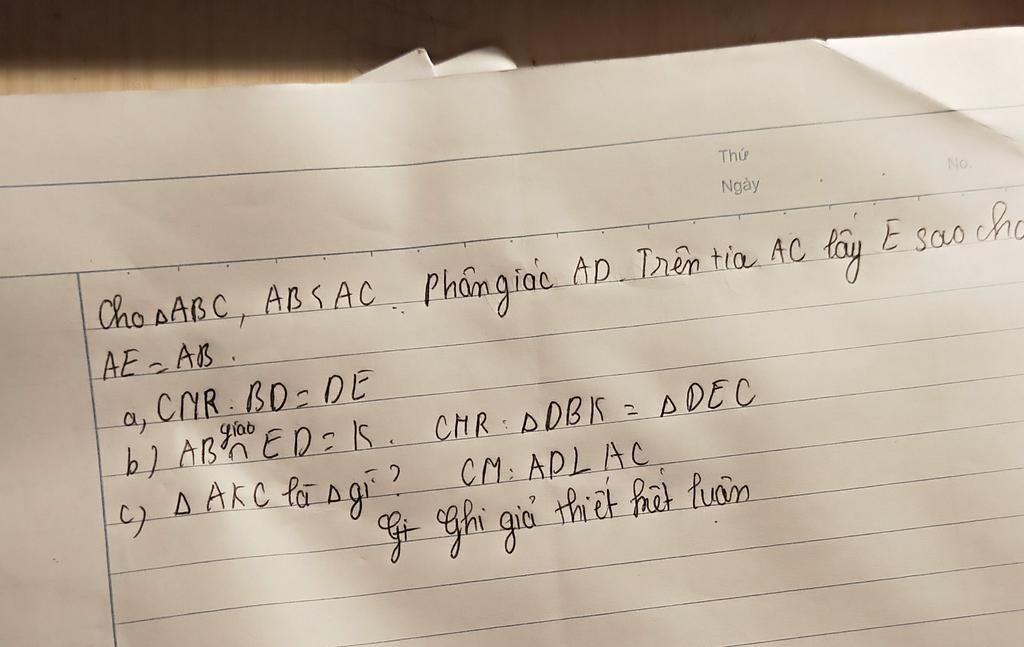 Thứ
No.
Ngày
Cho ΔABC, AB < AC. Phân giác AD. Trên tia AC lấy E sao cho
AE = AB.
a, CMR: BD = DE
giao
b) AB ∩ ED = K. CMR: ΔDBK = ΔDEC
c) Δ AKC là Δ gì? CM: AD⊥AC
Ghi giả thiết kết luận